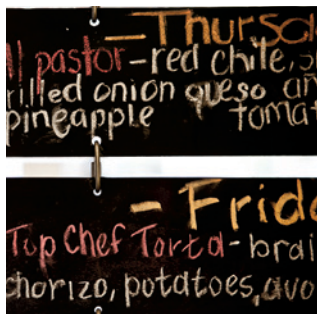 —Thursd
Al pastor-red chile, s
rilled onion queso an
pineapple tomat
- Frida
Top Chef Torta - brai
chorizo, potatoes, avo